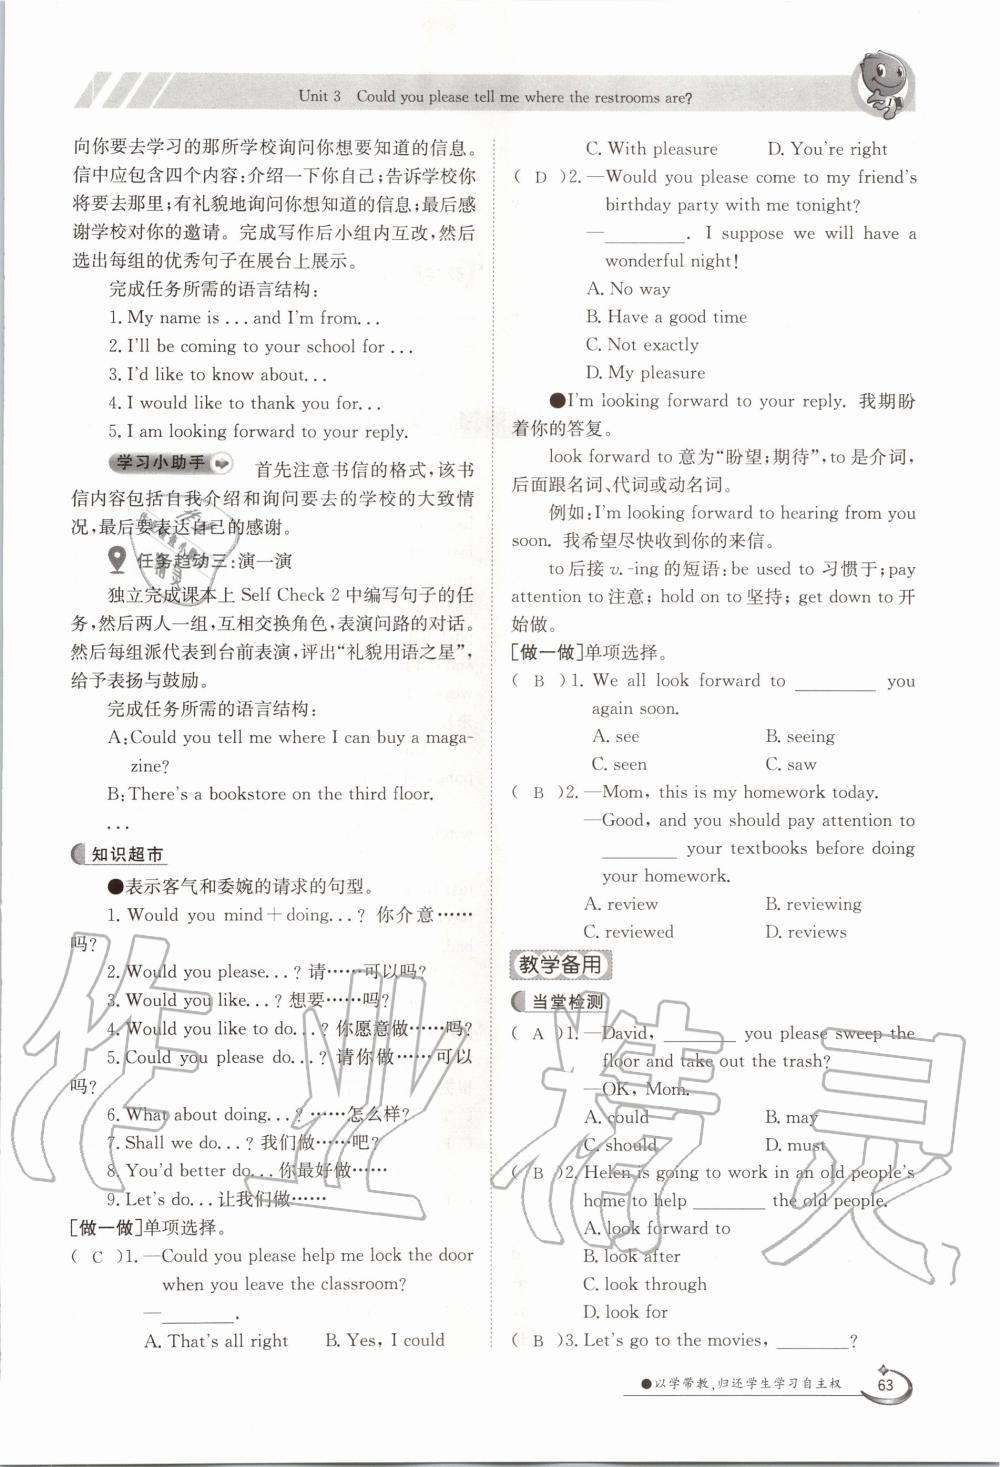 Unit 3 Could you please tell me where the restrooms are?
向你要去学习的那所学校询问你想要知道的信息。
信中应包含四个内容:介绍一下你自己;告诉学校你
将要去那里;有礼貌地询问你想知道的信息;最后感
谢学校对你的邀请。完成写作后小组内互改,然后
选出每组的优秀句子在展台上展示。
完成任务所需的语言结构:
1. My name is ... and I'm from...
2. I'll be coming to your school for ...
3. I'd like to know about...
4. I would like to thank you for...
5. I am looking forward to your reply.
学习小助手 首先注意书信的格式,该书
信内容包括自我介绍和询问要去的学校的大致情
况,最后要表达自己的感谢。
任务趋动三:演一演
独立完成课本上 Self Check 2 中编写句子的任
务,然后两人一组,互相交换角色,表演问路的对话。
然后每组派代表到台前表演,评出“礼貌用语之星”,
给予表扬与鼓励。
完成任务所需的语言结构:
A: Could you tell me where I can buy a maga-
zine?
B: There's a bookstore on the third floor.
...
知识超市
●表示客气和委婉的请求的句型。
1. Would you mind+doing...? 你介意……
吗?
2. Would you please...? 请……可以吗?
3. Would you like...? 想要……吗?
4. Would you like to do...? 你愿意做……吗?
5. Could you please do...? 请你做……可以
吗?
6. What about doing...? ……怎么样?
7. Shall we do...? 我们做……吧?
8. You'd better do... 你最好做……
9. Let's do... 让我们做……
[做一做]单项选择。
( C )1. —Could you please help me lock the door
when you leave the classroom?
—________.
A. That's all right B. Yes, I could
C. With pleasure D. You're right
( D )2. —Would you please come to my friend's
birthday party with me tonight?
—________. I suppose we will have a
wonderful night!
A. No way
B. Have a good time
C. Not exactly
D. My pleasure
●I'm looking forward to your reply. 我期盼
着你的答复。
look forward to 意为“盼望;期待”,to 是介词,
后面跟名词、代词或动名词。
例如:I'm looking forward to hearing from you
soon. 我希望尽快收到你的来信。
to 后接 v. -ing 的短语: be used to 习惯于; pay
attention to 注意; hold on to 坚持; get down to 开
始做。
[做一做]单项选择。
( B )1. We all look forward to ________ you
again soon.
A. see B. seeing
C. seen C. saw
( B )2. —Mom, this is my homework today.
—Good, and you should pay attention to
________ your textbooks before doing
your homework.
A. review B. reviewing
C. reviewed D. reviews
教学备用
当堂检测
( A )1. —David, ________ you please sweep the
floor and take out the trash?
—OK, Mom.
A. could B. may
C. should D. must
( B )2. Helen is going to work in an old people's
home to help ________ the old people.
A. look forward to
B. look after
C. look through
D. look for
( B )3. Let's go to the movies, ________?
●以学带教,归还学生学习自主权
63
作业精灵